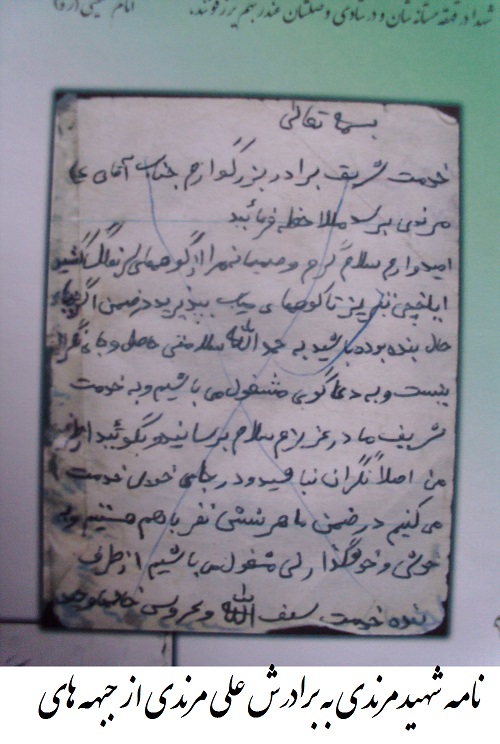 شهدا در قهقهه مستانه شان و در شادی وصلشان عند ربهم یرزقونند.
امام خمینی (ره)
بسمه تعالی
خدمت شریف برادر بزرگوارم جناب آقای علی
مرندی برسد ملاحظه فرمائید
امیدوارم سلام گرم و صمیمانه مرا از کوههای
تا کوههای میاب بپذیرید در ضمن اگر جویای
حال بنده بوده باشید به حمد الله سلامتی حاصل و جای نگرانی
نیست و به دعاگویی مشغول می باشیم و به خدمت
شریف مادر عزیزم سلام برسانید و بگوئید از طرف
من اصلاً نگران نباشید و در جای خوبی خدمت
می کنیم در ضمن ما هر شش نفر با هم هستیم و به
خوشی و خوشگذرانی مشغول می باشیم از طرف
بنده خدمت سیف الله و
نامه شهید مرندی به برادرش علی مرندی از جبهه های